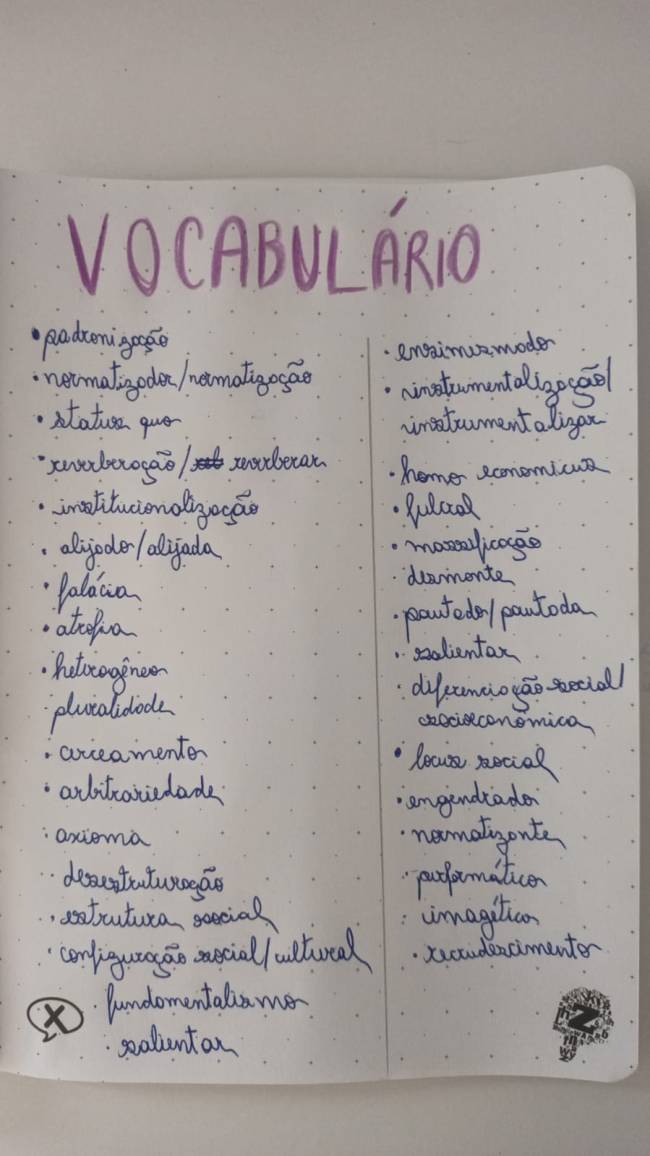 VOCABULÁRIO
• padronização
• normatizador/normatização
• status quo
• reverberação/ reverberar
• institucionalização
• alijado/alijada
• falácia
• atrofia
• heterogêneo
pluralidade
• cerceamento
• arbitrariedade
• axioma
• desestruturação
• estrutura social
• configuração social/cultural
• fundamentalismo
• salientar
• ensimesmado
• instrumentalização/
instrumentalizar
• homo economicus
• fulcral
• massificação
• desmonte
• pautado/pautada
• salientar
• diferenciação social/
socioeconômica
• locus social
• engendrador
• normatizante
• performático
• imagético
• recrudescimento
X
Z